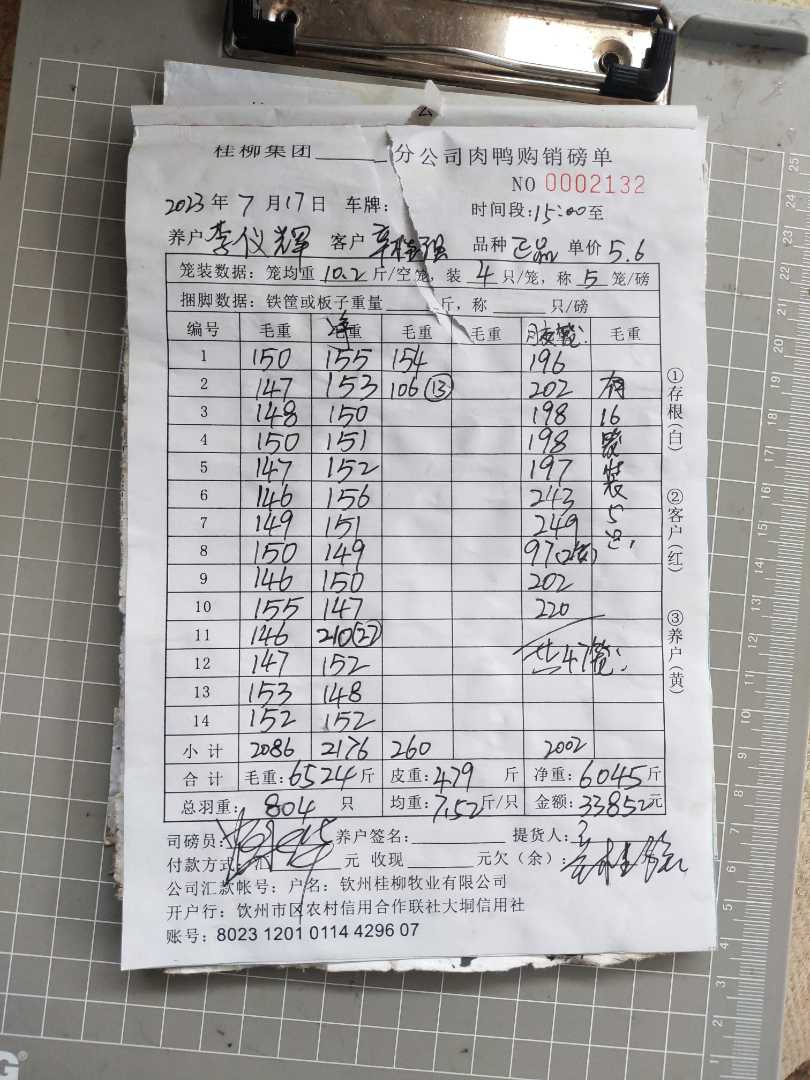 桂柳集团______分公司肉鸭购销磅单
NO 0002132
2023年7月17日 车牌： 时间段:15:00至
养户 李仪辉 客户 品种 正品 单价 5.6
笼装数据：笼均重 10.2 斤/空笼，装 4 只/笼，称 5 笼/磅
捆脚数据：铁筐或板子重量______斤，称______只/磅
编号 毛重 净重 毛重 毛重 毛重
1 150 155 154 196
2 147 153 106 (13) 202 有
3 148 150 198 16
4 150 151 198
5 147 152 197 装
6 146 156 243 5
7 149 151 249 只
8 150 149 97
9 146 150 202
10 155 147 220
11 146 210 (27)
12 147 152 共47
13 153 148
14 152 152
小计 2086 2176 260 2002
合计 毛重：6524斤 皮重：479 斤 净重：6045斤
总羽重：804 只 均重：7.52斤/只 金额：33852元
司磅员： 养户签名：______ 提货人：
付款方式：汇______元 收现______元欠（余）：
公司汇款帐号：户名：钦州桂柳牧业有限公司
开户行：钦州市区农村信用合作联社大垌信用社
账号：8023 1201 0114 4296 07
①存根(白)
②客户(红)
③养户(黄)